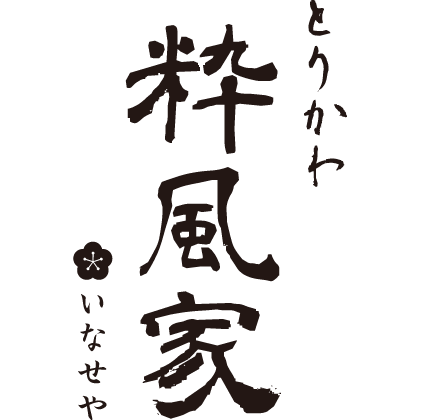 とりかわ
粋風家
いなせや